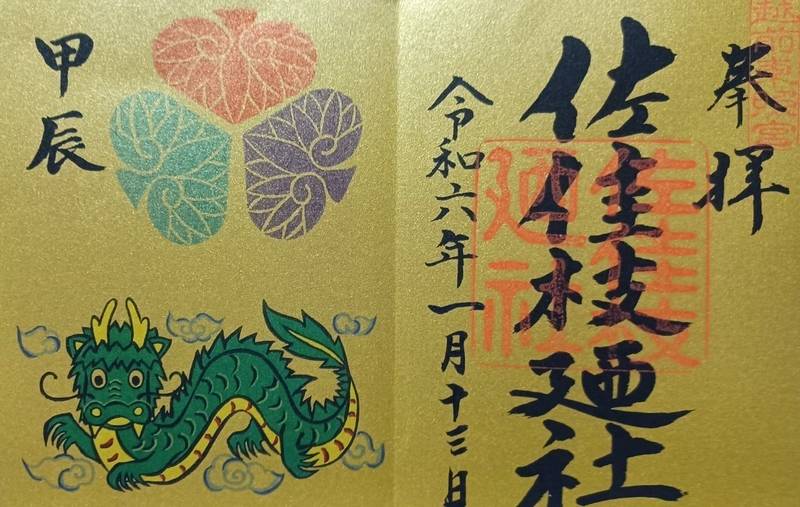 越前東照宮
奉拝
佐佳枝廼社
佐佳枝
廼社
令和六年一月十三日
甲辰